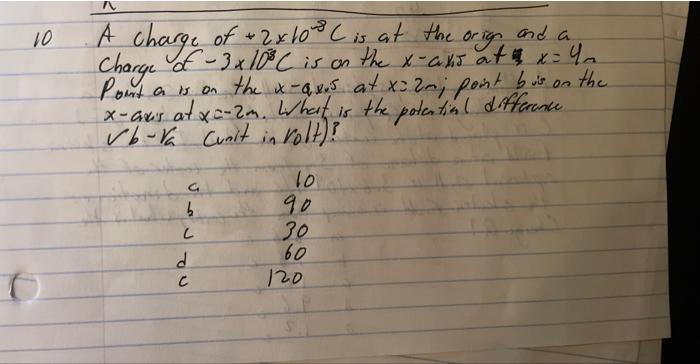 10 A charge of +2x10⁻⁸ C is at the orign and a
charge of -3x10⁻⁸ C is on the x-axis at x=4m
Point a is on the x-axis at x=2m; point b is on the
x-axis at x=-2m. What is the potential difference
Vb-Va (unit in volt)?
a 10
b 90
c 30
d 60
c 120